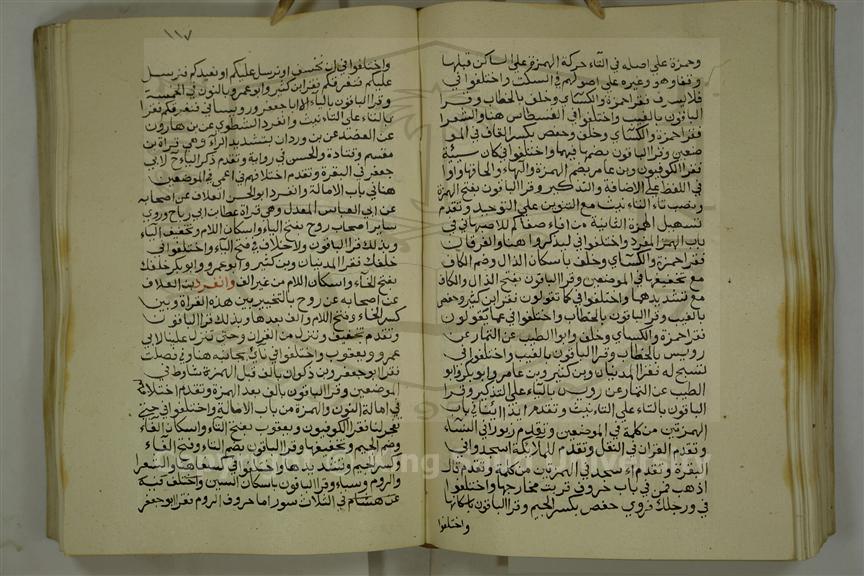 وحمزة على اصله في التاء حركة الهمزة على الساكن قبلها
وقفا وهو وغيره على اصولهم في السكت واختلفوا في
فلا يسرف فقرا حمزة والكساى وخلف بالخطاب وقرا
الباقون بالغيب واختلفوا في القسطاس هنا والشعرا
فقرا حمزة والكساى وخلف وحفص بكسر القاف في المو
ضعين وقرا الباقون بضمها فيهما واختلفوا في كان سيئة
فقرا الكوفيون وبن عامر بضم الهمزة والهاء والحاقها واوا
في اللفظ على الاضافة والتذكير وقرا الباقون بفتح الهمزة
ونصب تاء التانيث مع التنوين على التوحيد وتقدم
تسهيل الهمزة الثانية من افاصفاكم للاصبهاني في
باب الهمز المفرد واختلفوا في ليذكروا هنا والفرقان
فقرا حمزة والكساى وخلف باسكان الذال وضم الكاف
مع تخفيفها في الموضعين وقرا الباقون بفتح الذال والكاف
مع تشديدهما واختلفوا في كما تقولون فقرا بن كثير وحفص
بالغيب وقرا الباقون بالخطاب واختلفوا في عما يقولون
فقرا حمزة والكساى وخلف وابو الطيب عن التمار عن
رويس بالخطاب وقرا الباقون بالغيب واختلفوا في
تسبح له فقرا المدنيان وبن كثير وبن عامر وابو بكر وابو
الطيب عن التمار عن رويس بالياء على التذكير وقرا
الباقون بالتاء على التانيث وتقدم ائذا ائنا في باب
الهمزتين من كلمة في الموضعين وتقدم زبورا في النساء
وتقدم القران في النقل وتقدم للملائكة اسجدوا في
البقرة وتقدم ااسجد في الهمزتين من كلمة وتقدم قال
اذهب فمن في باب حروف قربت مخارجها واختلفوا
في ورجلك فروى حفص بكسر الجيم وقرا الباقون باسكانها
واختلفوا
١١٧
واختلفوا في ان نخسف او نرسل عليكم او نعيدكم فنرسل
عليكم فنغرقكم فقرا بن كثير وابو عمرو بالنون في الخمسة
وقرا الباقون بالياء الا ابا جعفر ورويسا في فنغرقكم فقرا
بالتاء على التانيث وانفرد الشطوي عن بن هارون
عن الفضل عن بن وردان بتشديد الراء وهي قراة بن
مقسم وقتادة والحسن في رواية وتقدم ذكر الرياح لابي
جعفر في البقرة وتقدم اختلافهم في اعمى في الموضعين
هنا في باب الامالة وانفرد ابو الحسن العلاف عن اصحابه
عن ابي العباس المعدل وهي قراة عطا بن ابي رباح وروى
ساير اصحاب روح بفتح الياء واسكان اللام وتخفيف الباء
وبذلك قرا الباقون ولا خلاف في فتح الباء واختلفوا في
خلفك فقرا المدنيان وبن كثير وابو عمرو وابو بكر خلفك
بفتح الخاء واسكان اللام من غير الف وانفرد بن العلاف
عن اصحابه عن روح بالتخيير بين هذه القراة وبين
كسر الخاء وفتح اللام والف بعدها وبذلك قرا الباقون
وتقدم تخفيف وننزل من القران وحتى تنزل علينا لابي
عمرو ويعقوب واختلفوا في ناى بجانبه هنا وفي فصلت
فقرا ابو جعفر وبن ذكوان بالف قبل الهمزة شاو في
الموضعين وقرا الباقون بالف بعد الهمزة وتقدم اختلافهم
في امالة النون والهمزة من باب الامالة واختلفوا في حتى
تفجر لنا فقرا الكوفيون ويعقوب بفتح التاء واسكان الفاء
وضم الجيم وتخفيفها وقرا الباقون بضم التاء وفتح الفاء
وكسر الجيم وتشديدها واختلفوا في كسفا هنا والشعرا
والروم وسباء وقرا الباقون باسكان السين واختلف فيه
عن هشام في الثلاث سور اما حروف الروم فقرا ابو جعفر